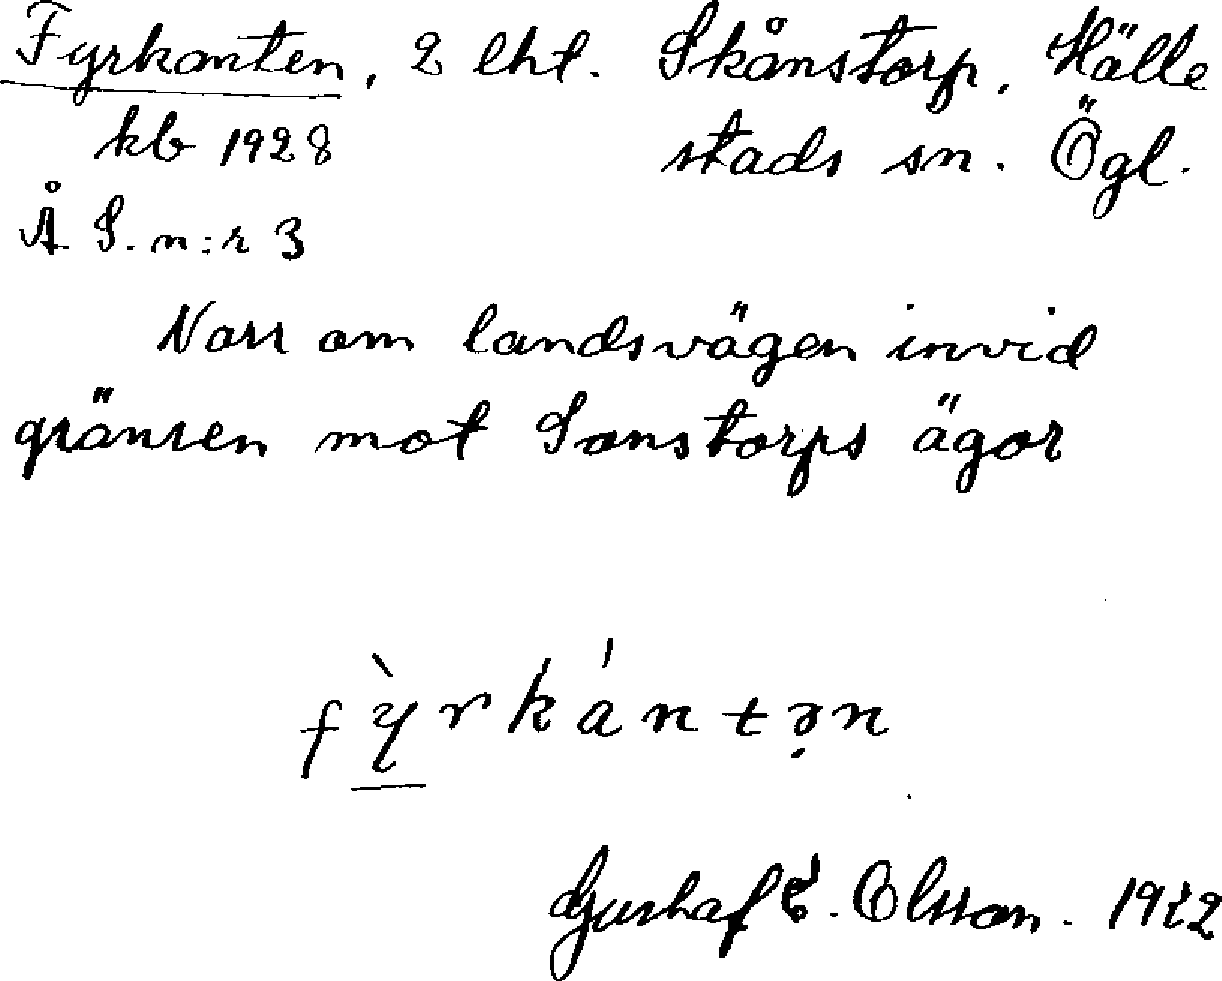 Fyrkanten, 2 lht. Skånstorp, Hälle
kb 1928 stads sn. Ögl.
Å S. n:r 3
Norr om landsvägen invid
gränsen mot Sonstorps ägor
fỳrkántən
Gustaf E. Olsson. 1922